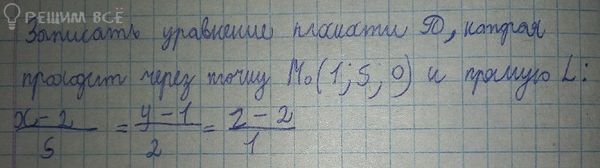 РЕШИМ ВСЁ
Записать уравнение плоскости P, которая
проходит через точку M₀(1; 5; 0) и прямую L:
x-2/5 = y-1/2 = z-2/1